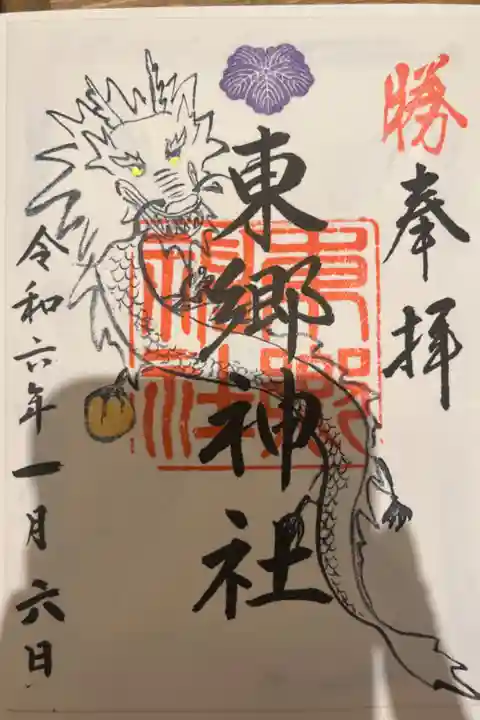 勝
奉拝
東郷神社
東郷神社
令和六年一月六日